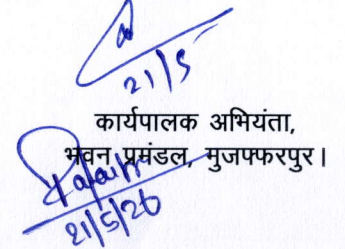 21/5
कार्यपालक अभियंता,
भवन प्रमंडल, मुजफ्फरपुर।
21/5/26